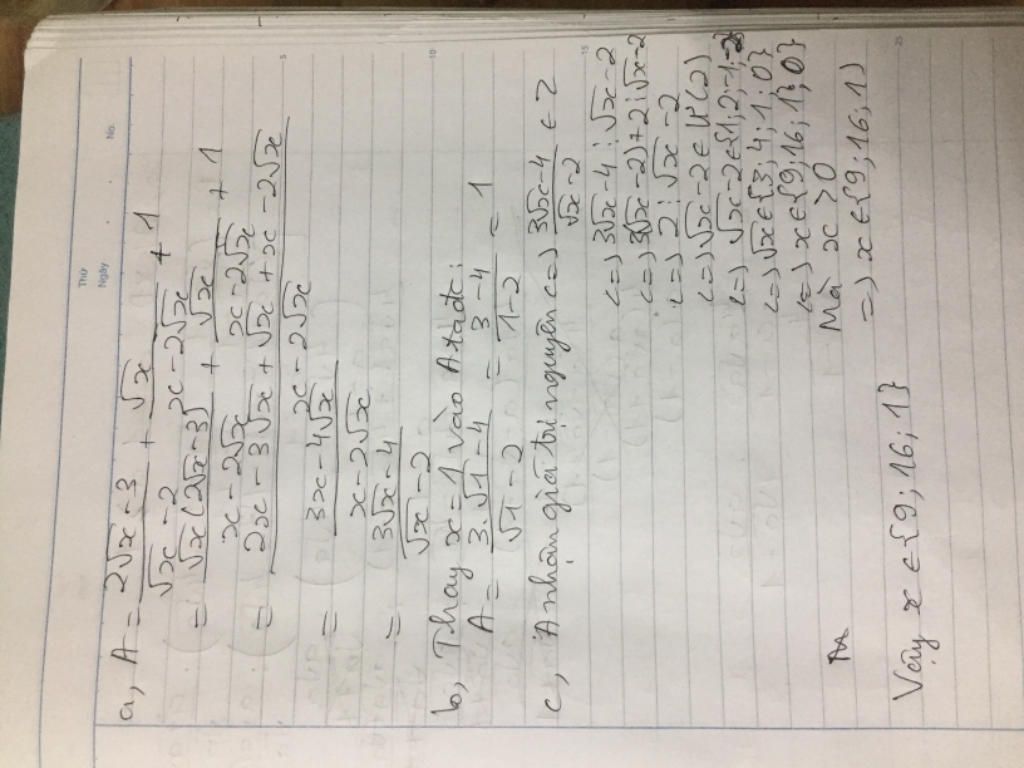 Thứ
Ngày No.
a, A = \frac{2\sqrt{x}-3}{\sqrt{x}-2} + \frac{\sqrt{x}}{x-2\sqrt{x}} + 1
= \frac{\sqrt{x}(2\sqrt{x}-3)}{x-2\sqrt{x}} + \frac{\sqrt{x}}{x-2\sqrt{x}} + 1
= \frac{2x-3\sqrt{x}+\sqrt{x}+x-2\sqrt{x}}{x-2\sqrt{x}}
= \frac{3x-4\sqrt{x}}{x-2\sqrt{x}}
= \frac{3\sqrt{x}-4}{\sqrt{x}-2}
b, Thay x=1 vào A ta đc:
A = \frac{3.\sqrt{1}-4}{\sqrt{1}-2} = \frac{3-4}{1-2} = 1
c, A nhận giá trị nguyên <=> \frac{3\sqrt{x}-4}{\sqrt{x}-2} ∈ Z
<=> 3\sqrt{x}-4 ⋮ \sqrt{x}-2
<=> 3(\sqrt{x}-2)+2 ⋮ \sqrt{x}-2
<=> 2 ⋮ \sqrt{x}-2
<=> \sqrt{x}-2 ∈ Ư(2)
<=> \sqrt{x}-2 ∈ {1;2;-1;-2}
<=> \sqrt{x} ∈ {3;4;1;0}
<=> x ∈ {9;16;1;0}
Mà x > 0
=> x ∈ {9;16;1}
Vậy x ∈ {9;16;1}
5
10
15
25